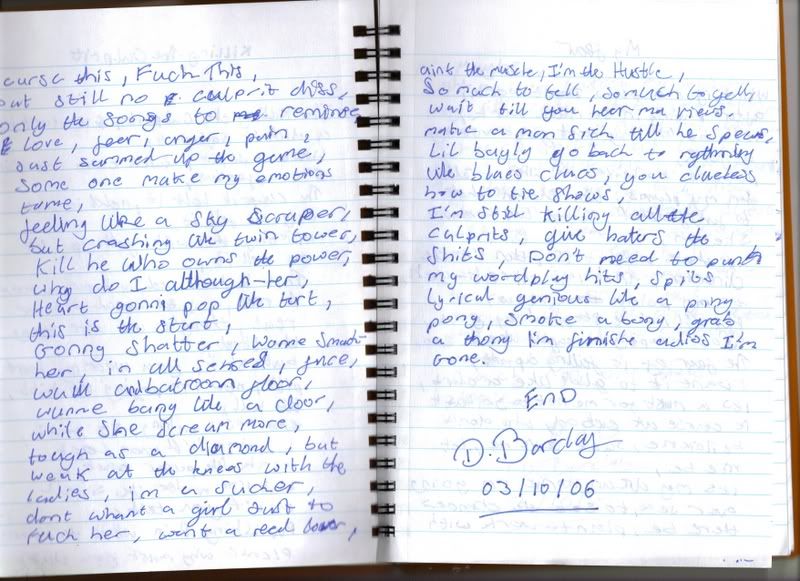 curse this, Fuck This,
but still no culprit diss,
only the songs to reminse
love, feer, anger, pain,
Just summed up the game,
Some one make my emotions
tame,
feeling like a Sky Scrapper,
but crashing like twin tower,
Kill he who owns the power,
why do I although-her,
Heart gonni pop like tart,
this is the start,
Gonny Shatter, wanne Smach
her, in all sensed, face,
wall and batroom floor,
wanne bang like a door,
while She scream more,
tough as a diamond, but
weak at the knees with the
ladies, i'm a Sucker,
dont whant a girl Just to
Fuck her, want a reed lover,
aint the muscle, I'm the Hustle,
So mach to tell, so much to yell,
wait till you heer ma views.
make a man sick till he spews,
Lil bayly go back to rythmley
like blues clues, you clueless
how to tie shows,
I'm still killing all the
culprits, give haters the
shits. Don't need to punch
my wordplay hits, spits
lyrical genious like a ping
pong, smoke a bong, grab
a thong I'm finishe adios I'm
Gone.
END
D. Barclay
03/10/06